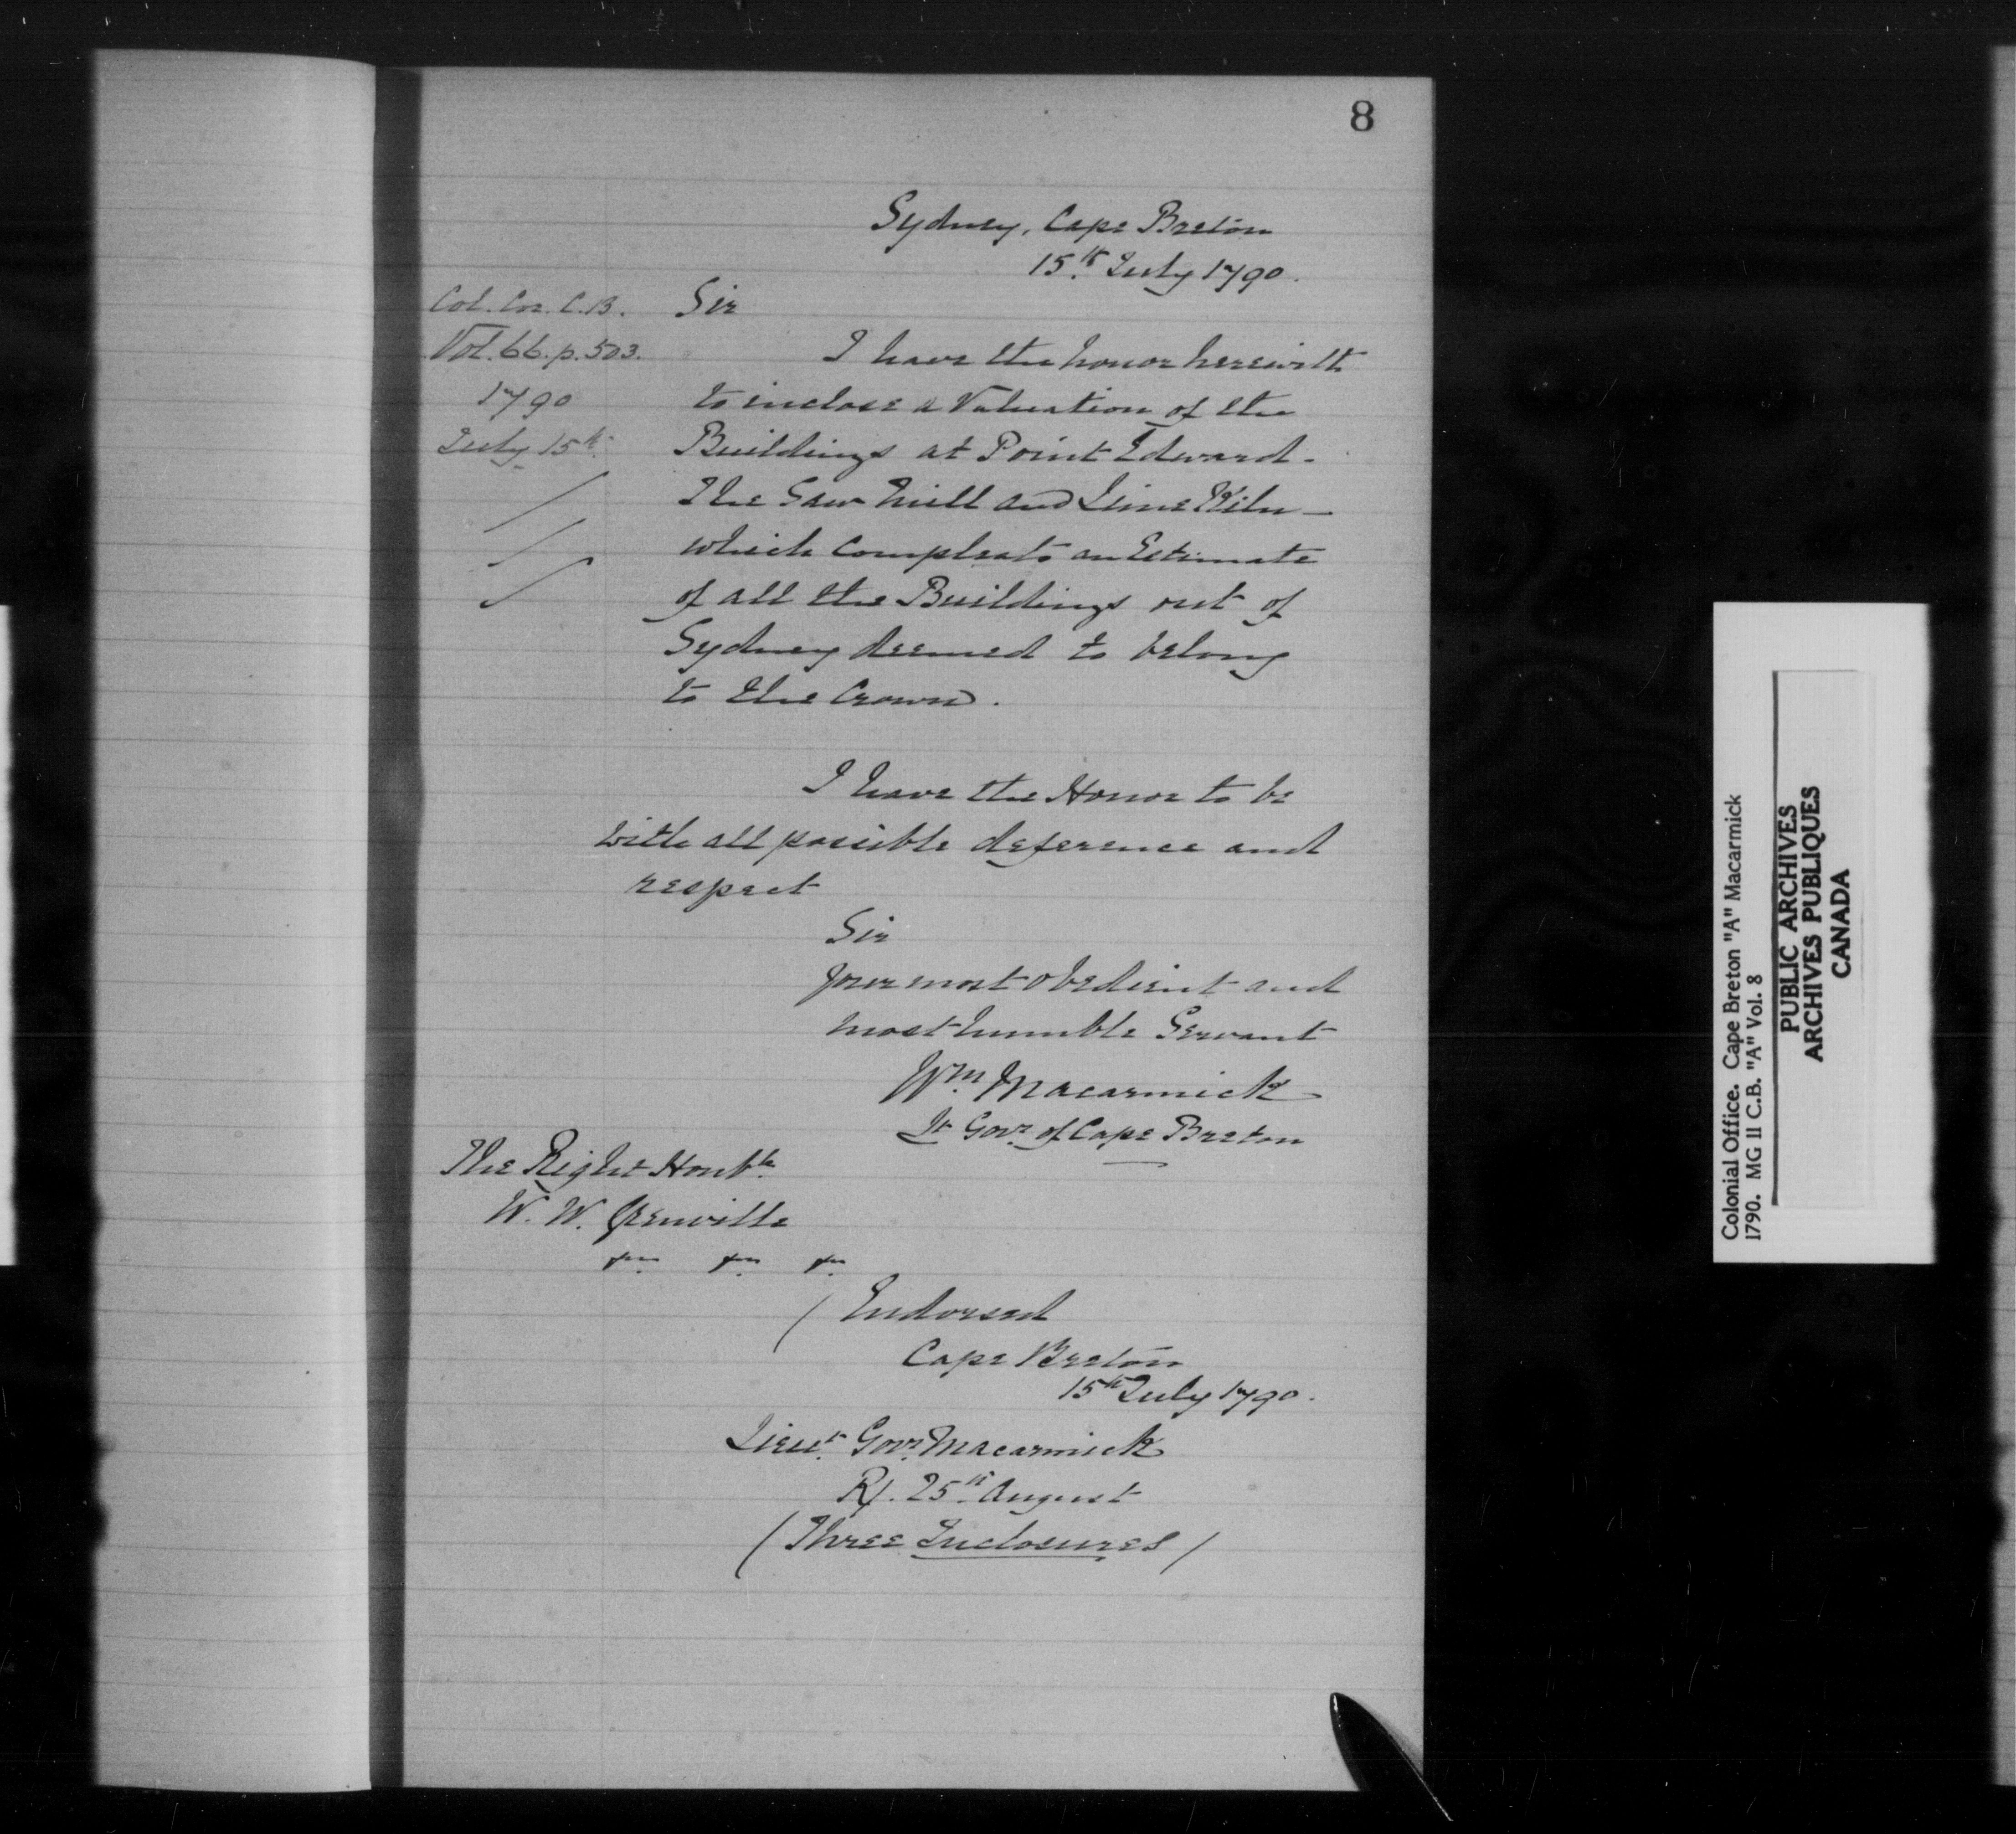 8
Sydney, Cape Breton
15th July 1790.
Col. Cor. C.B.
Vol. 66. p. 503.
1790
July 15th
Sir
I have the honor herewith
to inclose a Valuation of the
Buildings at Point Edward -
The Saw Mill and Lime Kiln -
which compleats an Estimate
of all the Buildings out of
Sydney deemed to belong
to the Crown.
I have the Honor to be
with all possible deference and
respect
Sir
your most obedient and
most humble Servant
Wm. Macarmick
Lt Govr. of Cape Breton
The Right Honble.
W. W. Grenville
(Endorsed
Cape Breton
15th July 1790.
Lieut. Govr. Macarmick
R/. 25th August
(Three Inclosures)
Colonial Office. Cape Breton "A" Macarmick
1790. MG 11 C.B. "A" Vol. 8
PUBLIC ARCHIVES
ARCHIVES PUBLIQUES
CANADA